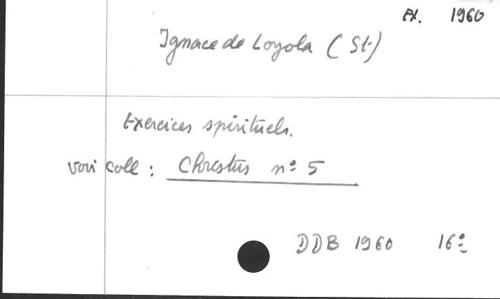 EX. 1960
Ignace de Loyola (St)
Exercices spirituels.
voir coll : Christus n° 5
DDB 1960 16°